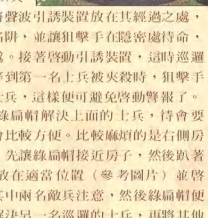 聲波引誘裝置放在其經過之處，
陷阱，並讓狙擊手在隱密處待命，
。接著啓動引誘裝置，這時巡邏
到第一名士兵被夾殺時，狙擊手
士兵，這樣便可避免啓動警報了。
綠扁帽解決上面的士兵，待會要
會比較方便。比較麻煩的是右側房
先讓綠扁帽接近房子，然後趴著
放在適當位置（參考圖片）並啓
其中兩名敵兵注意，然後綠扁帽便
解決另一名巡邏的士兵，再將其他